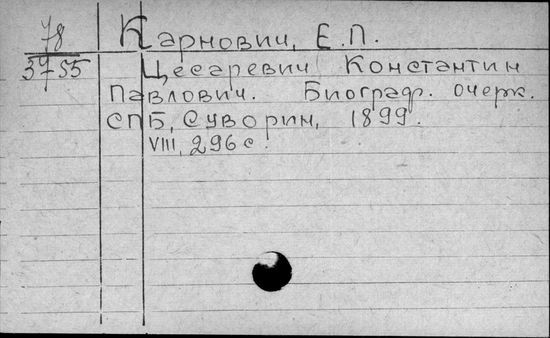 78
Карнович, Е.П.
3755
Цесаревич Константин
Павлович. Биограф. очерк.
СПБ, Суворин, 1899.
VIII, 296 с.